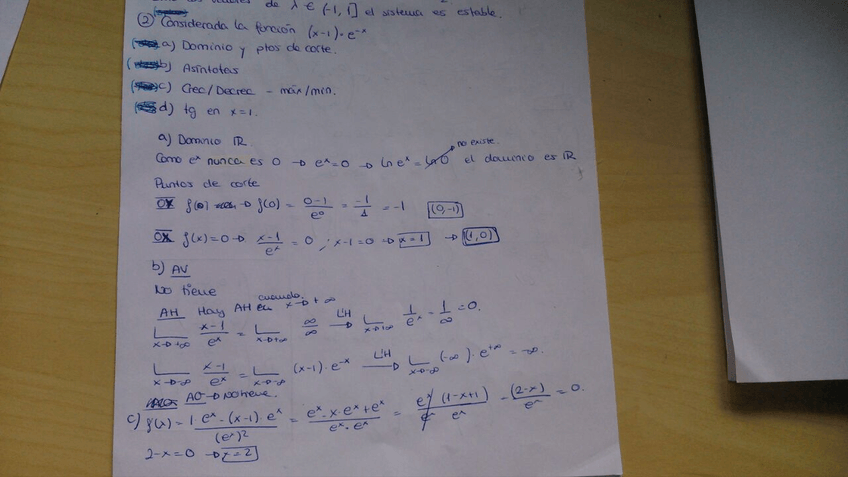 los valores de λ ∈ (-1, 1] el sistema es estable.
② Considerada la función (x-1)·e^-x
a) Dominio y ptos de corte.
b) Asíntotas
c) Crec/Decrec - máx/min.
d) tg en x=1.
a) Dominio ℝ
no existe.
Como e^x nunca es 0 → e^x=0 → Ln e^x = Ln 0 el dominio es ℝ
Puntos de corte
OY f(0) → f(0) = (0-1)/e^0 = -1/1 = -1 (0,-1)
OX f(x)=0 → (x-1)/e^x = 0 ; x-1=0 → x=1 → (1,0)
b) AV
No tiene
AH Hay AH cuando x→+∞
L x→+∞ (x-1)/e^x = L x→+∞ ∞/∞ L'H → L x→+∞ 1/e^x = 1/∞ = 0.
L x→-∞ (x-1)/e^x = L x→-∞ (x-1)·e^-x L'H → L x→-∞ (-∞)·e^+∞ = -∞.
AO → No tiene.
c) f(x) = (1 e^x - (x-1)·e^x)/(e^x)^2 = (e^x - x·e^x + e^x)/(e^x·e^x) = (e^x (1-x+1))/(e^x e^x) = (2-x)/e^x = 0.
2-x=0 → x=2